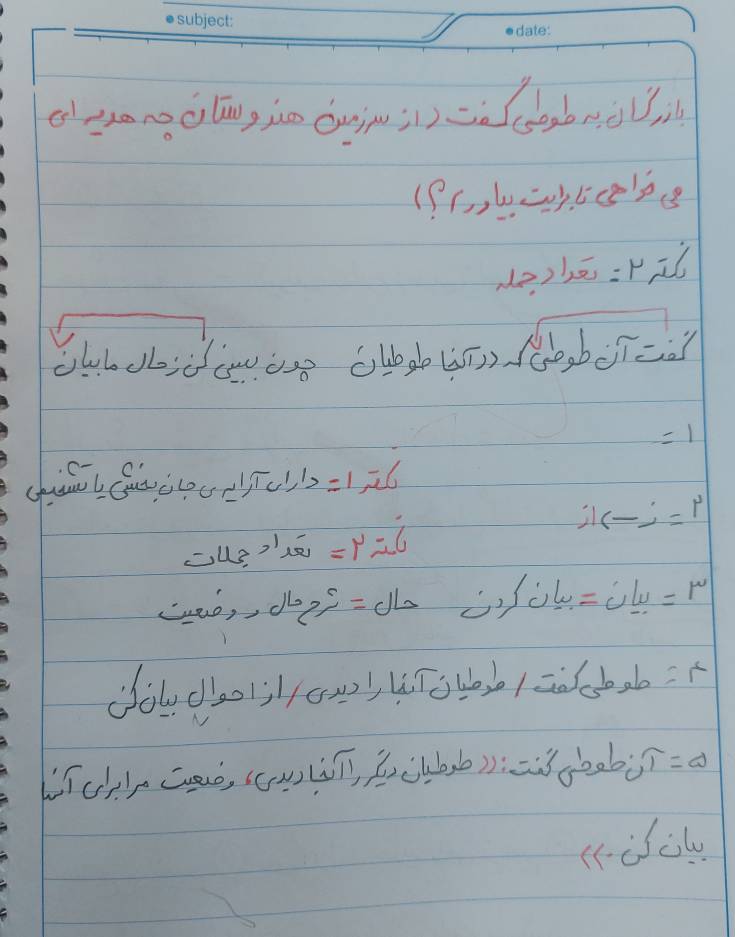 subject:
date:
بازرگان به طوطی گفت (از سرزمین هندوستان چه هدیه ای
می خواهی تا برایت بیاورم؟)
نکته ۲ = تعداد جمله
گفت آن طوطی که در آنجا طوطیان چون ببینی کن ز حال ما بیان
۱ =
نکته ۱ = دارای آرایه ی جان بخشی یا تشخیص
۲ = ز ← از
نکته ۲ = تعداد جملات
۳ = بیان = بیان کردن حال = شرح حال و وضعیت
۴ = طوطی گفت / طوطیان آنجا را دیدی / از احوال بیان کن
۵ = آن طوطی گفت: «طوطیان دیگر را آنجا دیدی، وضعیت مرا برای آنها
بیان کن.»